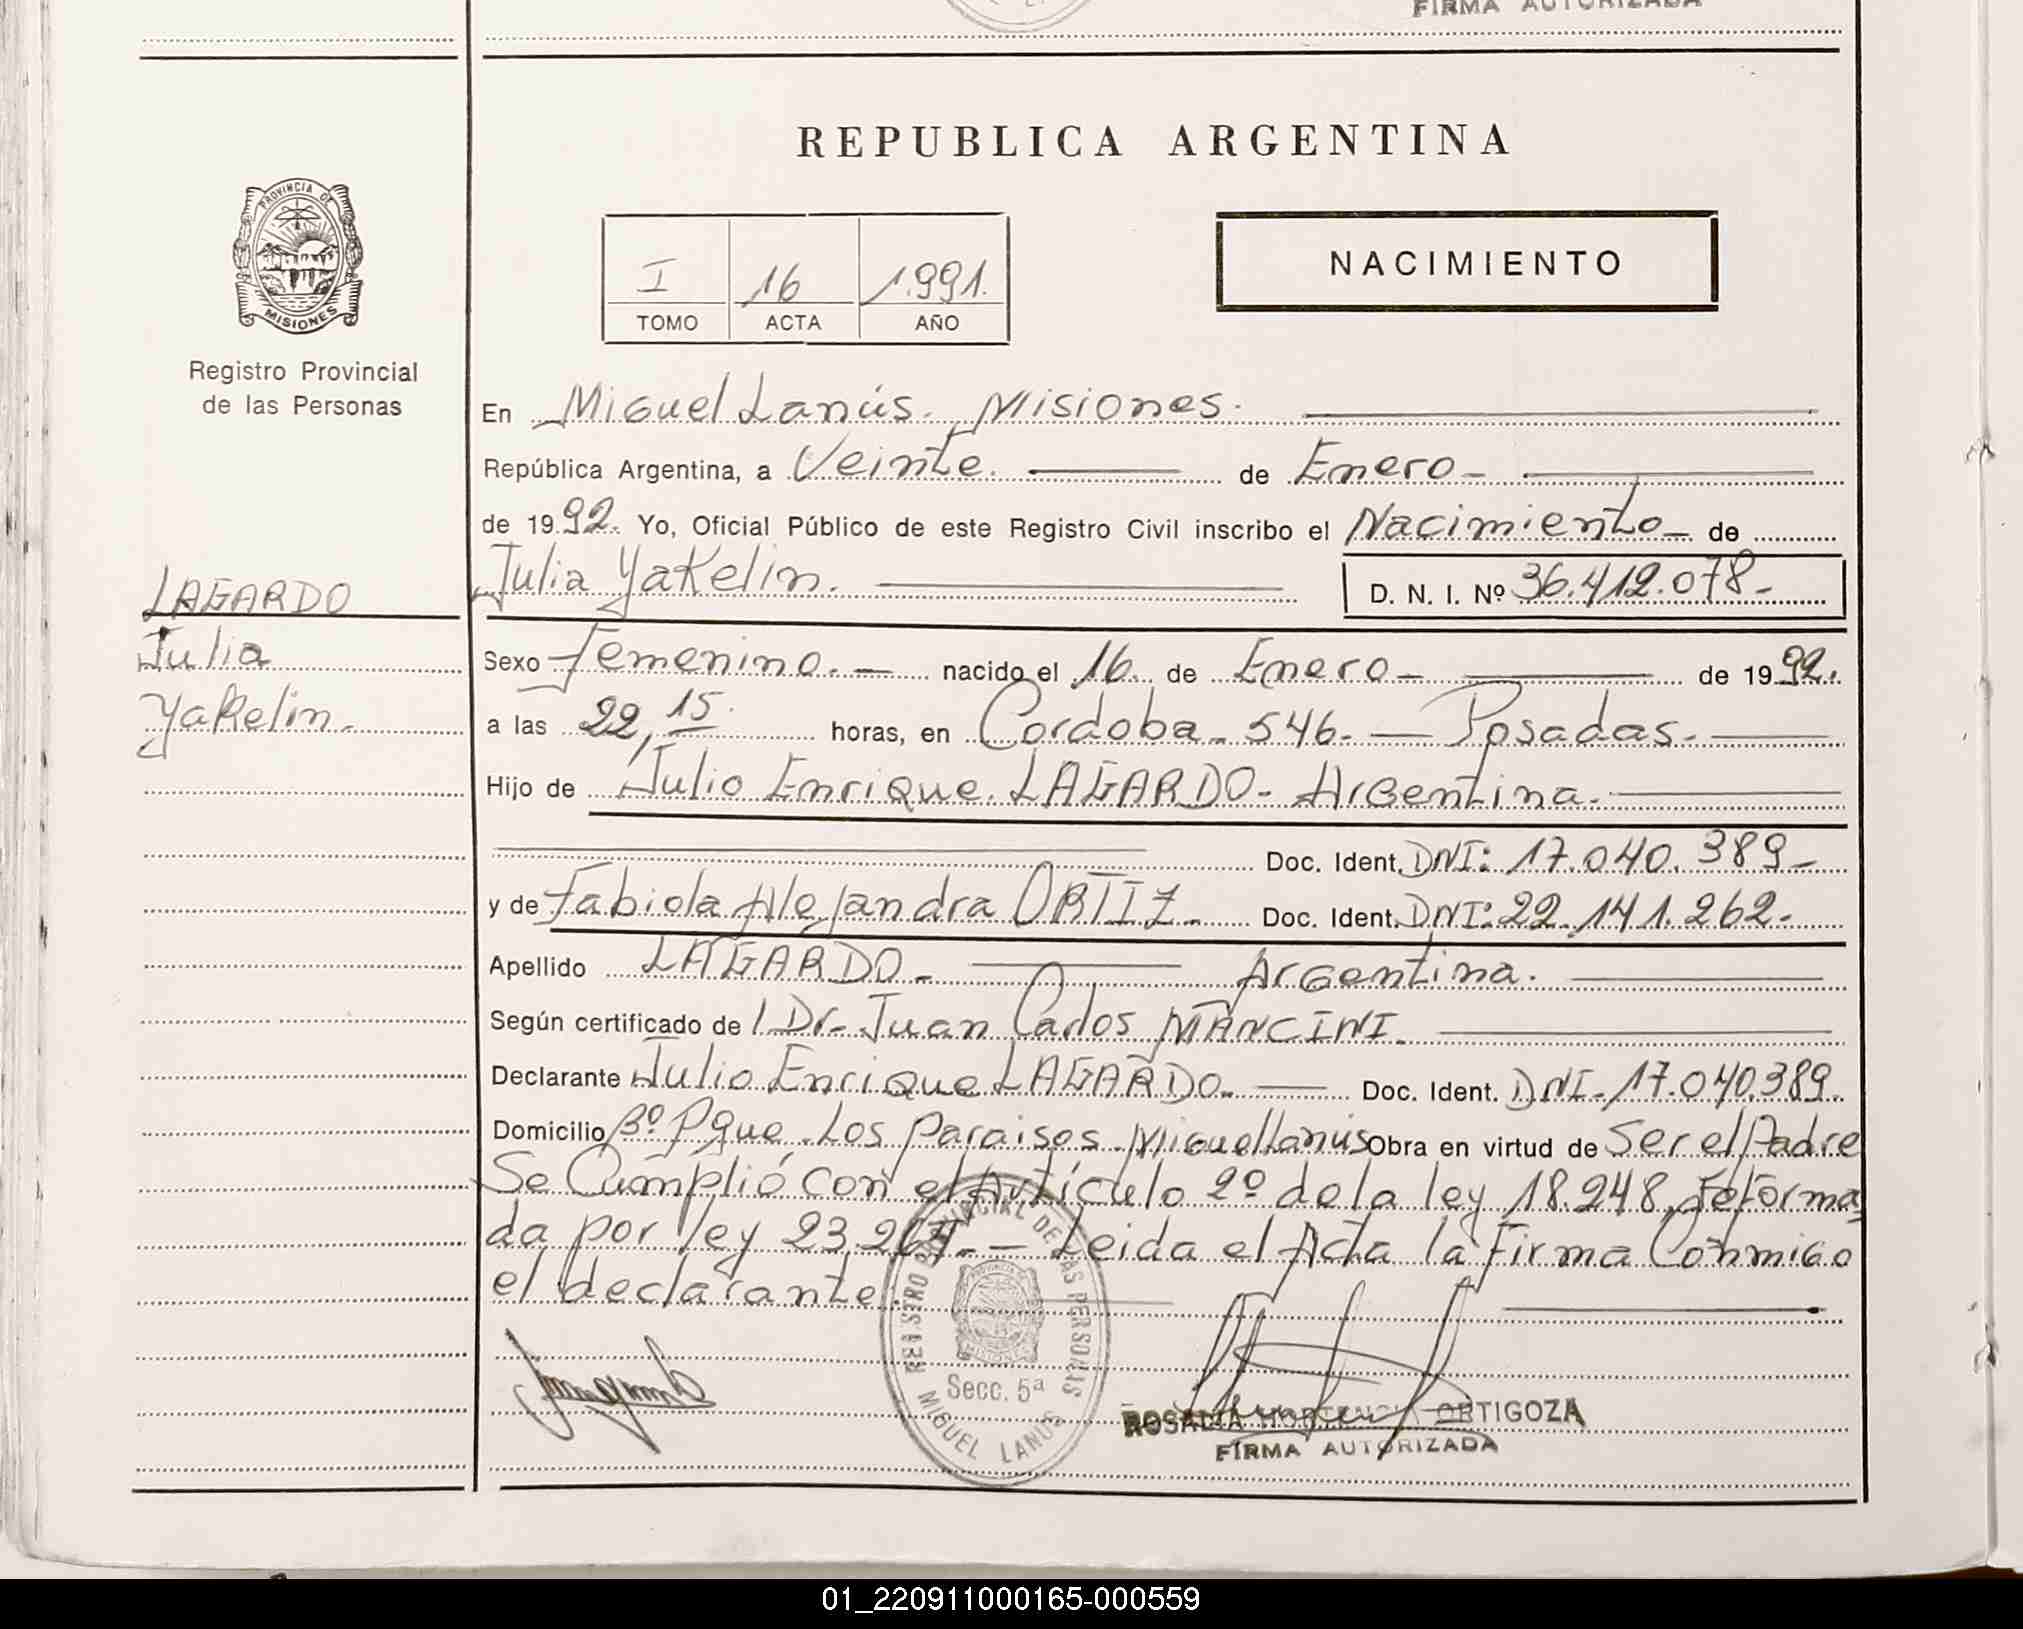 FIRMA AUTORIZADA
REPUBLICA ARGENTINA
PROVINCIA DE
MISIONES
Registro Provincial
de las Personas
I 16 1.991.
TOMO ACTA AÑO
NACIMIENTO
En Miguel Lanús. Misiones.
República Argentina, a Veinte. de Enero
de 1992. Yo, Oficial Público de este Registro Civil inscribo el Nacimiento de
LAGARDO
Julia
Yakelin.
Julia Yakelin. D. N. I. Nº 36.412.078-
Sexo Femenino. nacido el 16. de Enero de 1992.
a las 22,15. horas, en Cordoba. 546. Posadas.
Hijo de Julio Enrique. LAGARDO- Argentina.
Doc. Ident. DNI: 17.040.389-
y de Fabiola Alejandra ORTIZ. Doc. Ident. DNI: 22.141.262.
Apellido LAGARDO Argentina.
Según certificado de l Dr. Juan Carlos MANCINI.
Declarante Julio Enrique LAGARDO. Doc. Ident. DNI-17.040.389.
Domicilio Bº Pque. Los Paraisos. Miguel Lanús Obra en virtud de Ser el Padre
Se Cumplió con el Artículo 2º de la ley 18.248, reforma
da por ley 23.264. Leida el Acta la Firma Conmigo
el declarante.
REGISTRO PROVINCIAL DE LAS PERSONAS
PROVINCIA DE
MISIONES
Secc. 5ª
MIGUEL LANUS
ROSALIA HORTENCIA ORTIGOZA
FIRMA AUTORIZADA
01_220911000165-000559